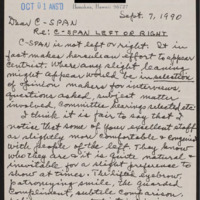 OCT 01
Sept. 7, 1990
Dear C-SPAN
Re: C-SPAN LEFT OR RIGHT
C-SPAN is not left or right. It in
fact makes herculean effort to appear
centrist. Where any slight leaning
might appear would be in selection
of opinion makers for interviews,
questions asked, subject matter
involved, committee hearings selected etc.
I think it is fair to say that I
notice that some of your excellent staff
as slightly more comfortable &
with people of the left. They know
who they are &
inevitable, for a slight preference to
show at times. The lifted eyebrow,
patronizing smile, the guarded
compliment, subtle comparison